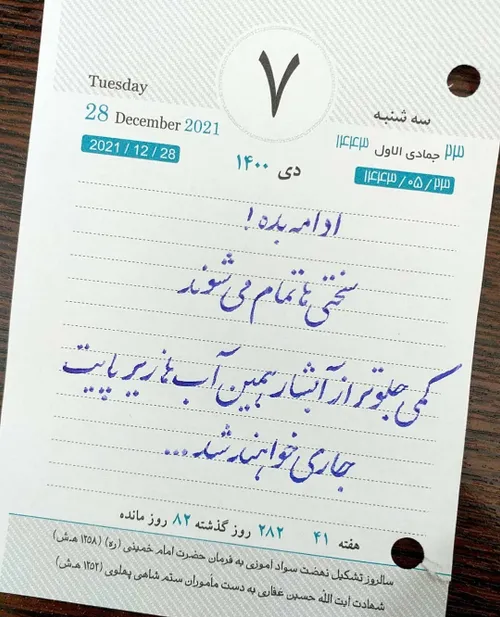 ۷
Tuesday
سه شنبه
28 December 2021
۲۳ جمادی الاول ۱۴۴۳
2021 / 12 / 28
دی ۱۴۰۰
۱۴۴۳ / ۰۵ / ۲۳
ادامه بده !
سختی ها تمام می شوند
کمی جلوتر از آبشار همین آب ها زیر پایت
جاری خواهند شد ...
هفته ۴۱ ۲۸۲ روز گذشته ۸۲ روز مانده
سالروز تشکیل نهضت سواد آموزی به فرمان حضرت امام خمینی (ره) (۱۳۵۸ ه.ش)
شهادت آیت الله حسین غفاری به دست مأموران ستم شاهی پهلوی (۱۳۵۳ ه.ش)